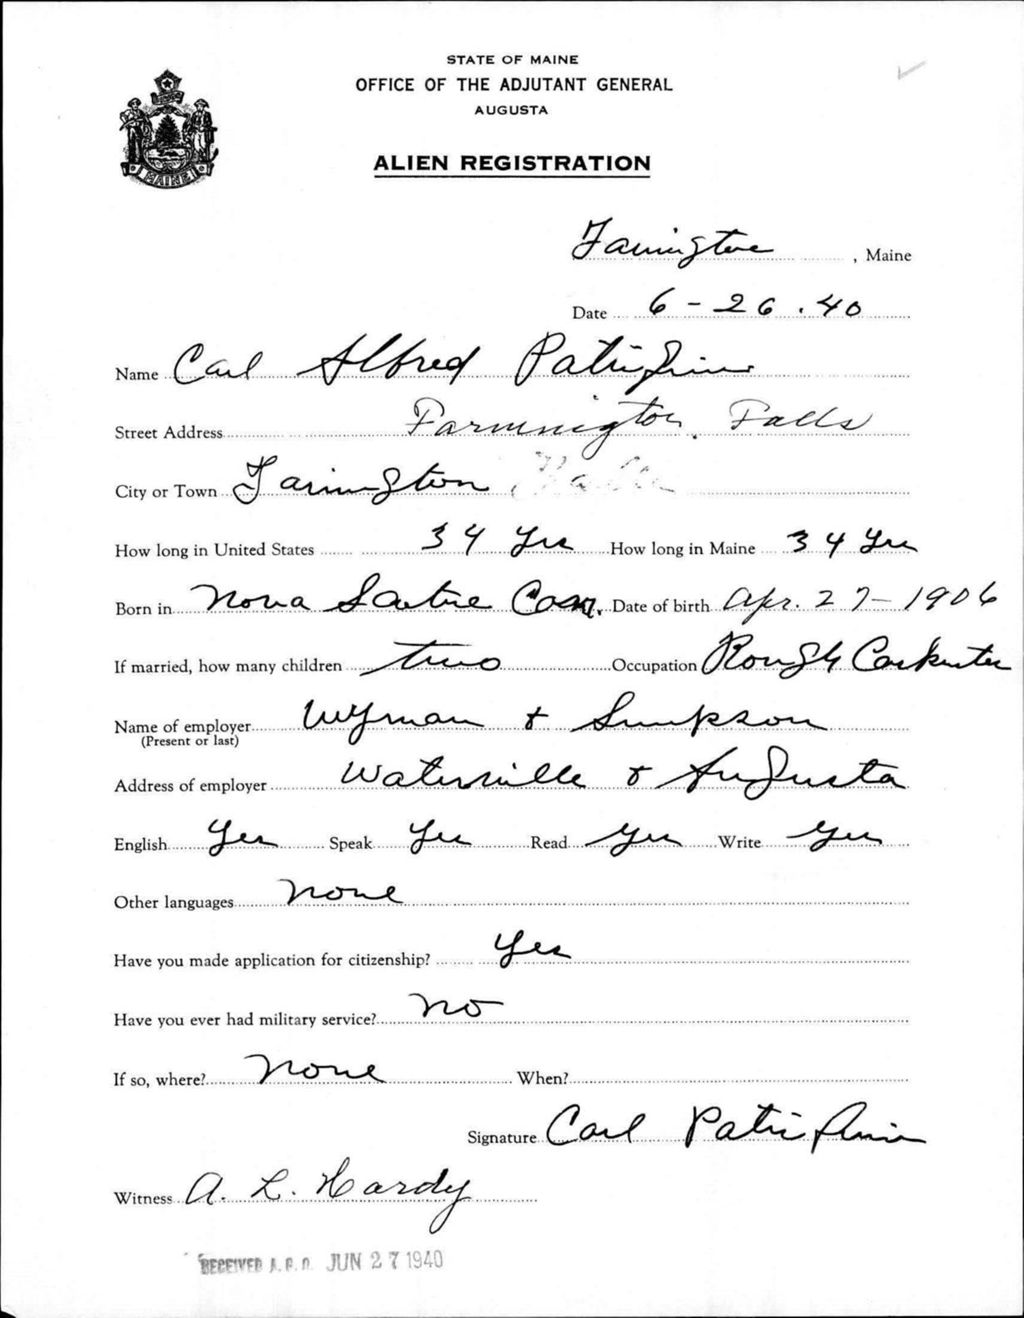 STATE OF MAINE
OFFICE OF THE ADJUTANT GENERAL
AUGUSTA
ALIEN REGISTRATION
MAINE
Farmington, Maine
Date 6-26.40
Name Carl Alfred
Street Address Farmington Falls
City or Town Farmington Falls
How long in United States 34 Yrs How long in Maine 34 Yrs
Born in Nova Scotia Can. Date of birth Apr. 27-1906
If married, how many children two Occupation Rough Carpenter
Name of employer Wyman + Simpson
(Present or last)
Address of employer Waterville + Augusta
English Yes Speak Yes Read Yes Write Yes
Other languages None
Have you made application for citizenship? Yes
Have you ever had military service? No
If so, where? None When?
Signature Carl
Witness A. L. Hardy
RECEIVED A.G.O. JUN 27 1940